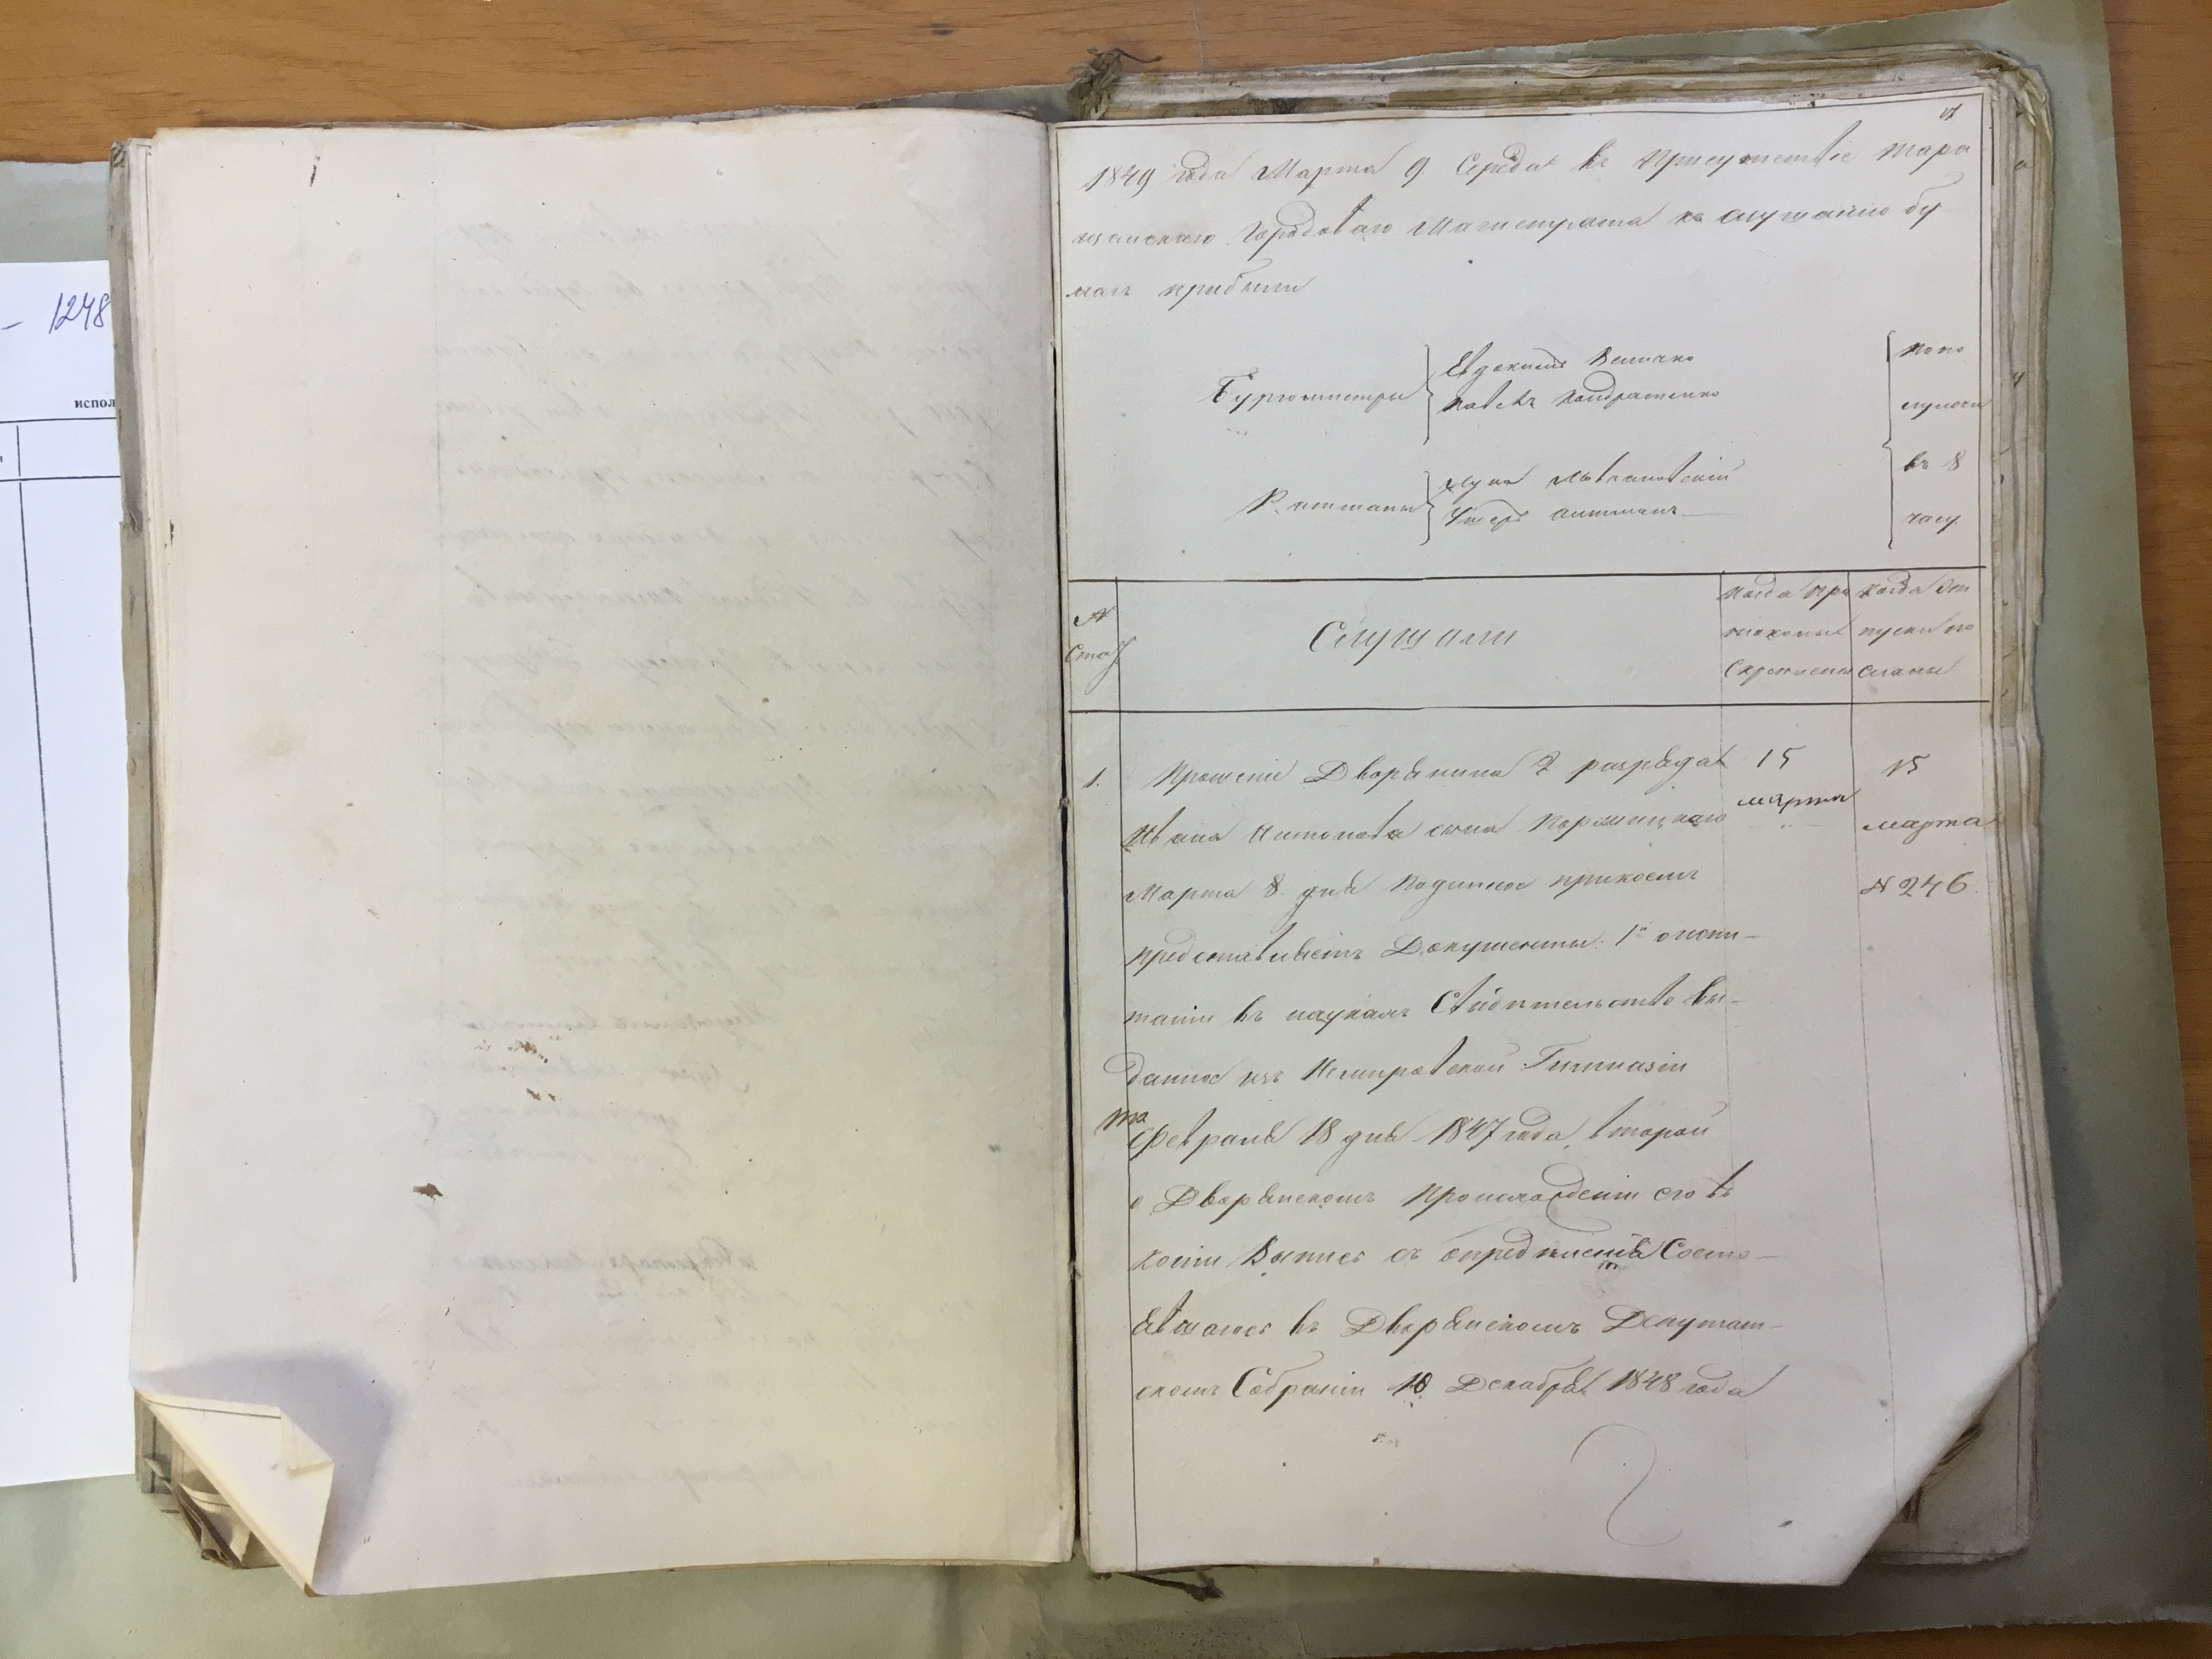 1248
испол
17
1849 года Марта 9 Середа въ Присутствіе Тара
щанскаго Городоваго Магистрата къ слушанію бу
магъ прибыли
Бургомистры
Евдокимъ Величко
Павелъ Кондратенко
Ратманы
Лука
по по
лудни
въ 8
часу
№
Стат
Слушали
Когда про
токолы
Скреплены
Когда от
пуски по
сланы
1.
Прошеніе Дворянина 2 разряда
Ивана Антонова сына
Марта 8 дня поданное при коемъ
представляетъ Документы: 1е о испы-
таніи въ наукахъ Свидѣтельство вы-
данное изъ Немировской Гимназіи
Февраля 18 дня 1847 года, второй
о Дворянскомъ происхожденіи его въ
копіи Выпись съ опредѣленія Состо-
явшагося въ Дворянскомъ Депутат-
скомъ Собраніи 10 Декабря 1848 года
15
марта
15
марта
№ 246.